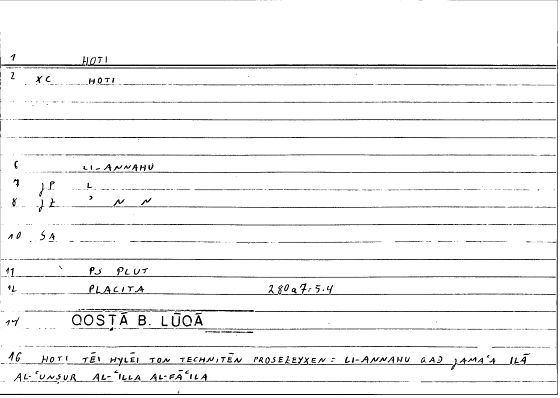 1 HOTI
2 XC HOTI
6 LI-ANNAHU
7 JP L
8 JŁ ʾ N N
10 SA
11 PS PLUT
12 PLACITA 280a7:5.4
14 QOSṬĀ B. LŪQĀ
16 HOTI TĒI HYLĒI TON TECHNITĒN PROSEZEYXEN : LI-ANNAHU QAD JAMAʿA ILĀ
AL-ʿUNṢUR AL-ʿILLA AL-FĀʿILA